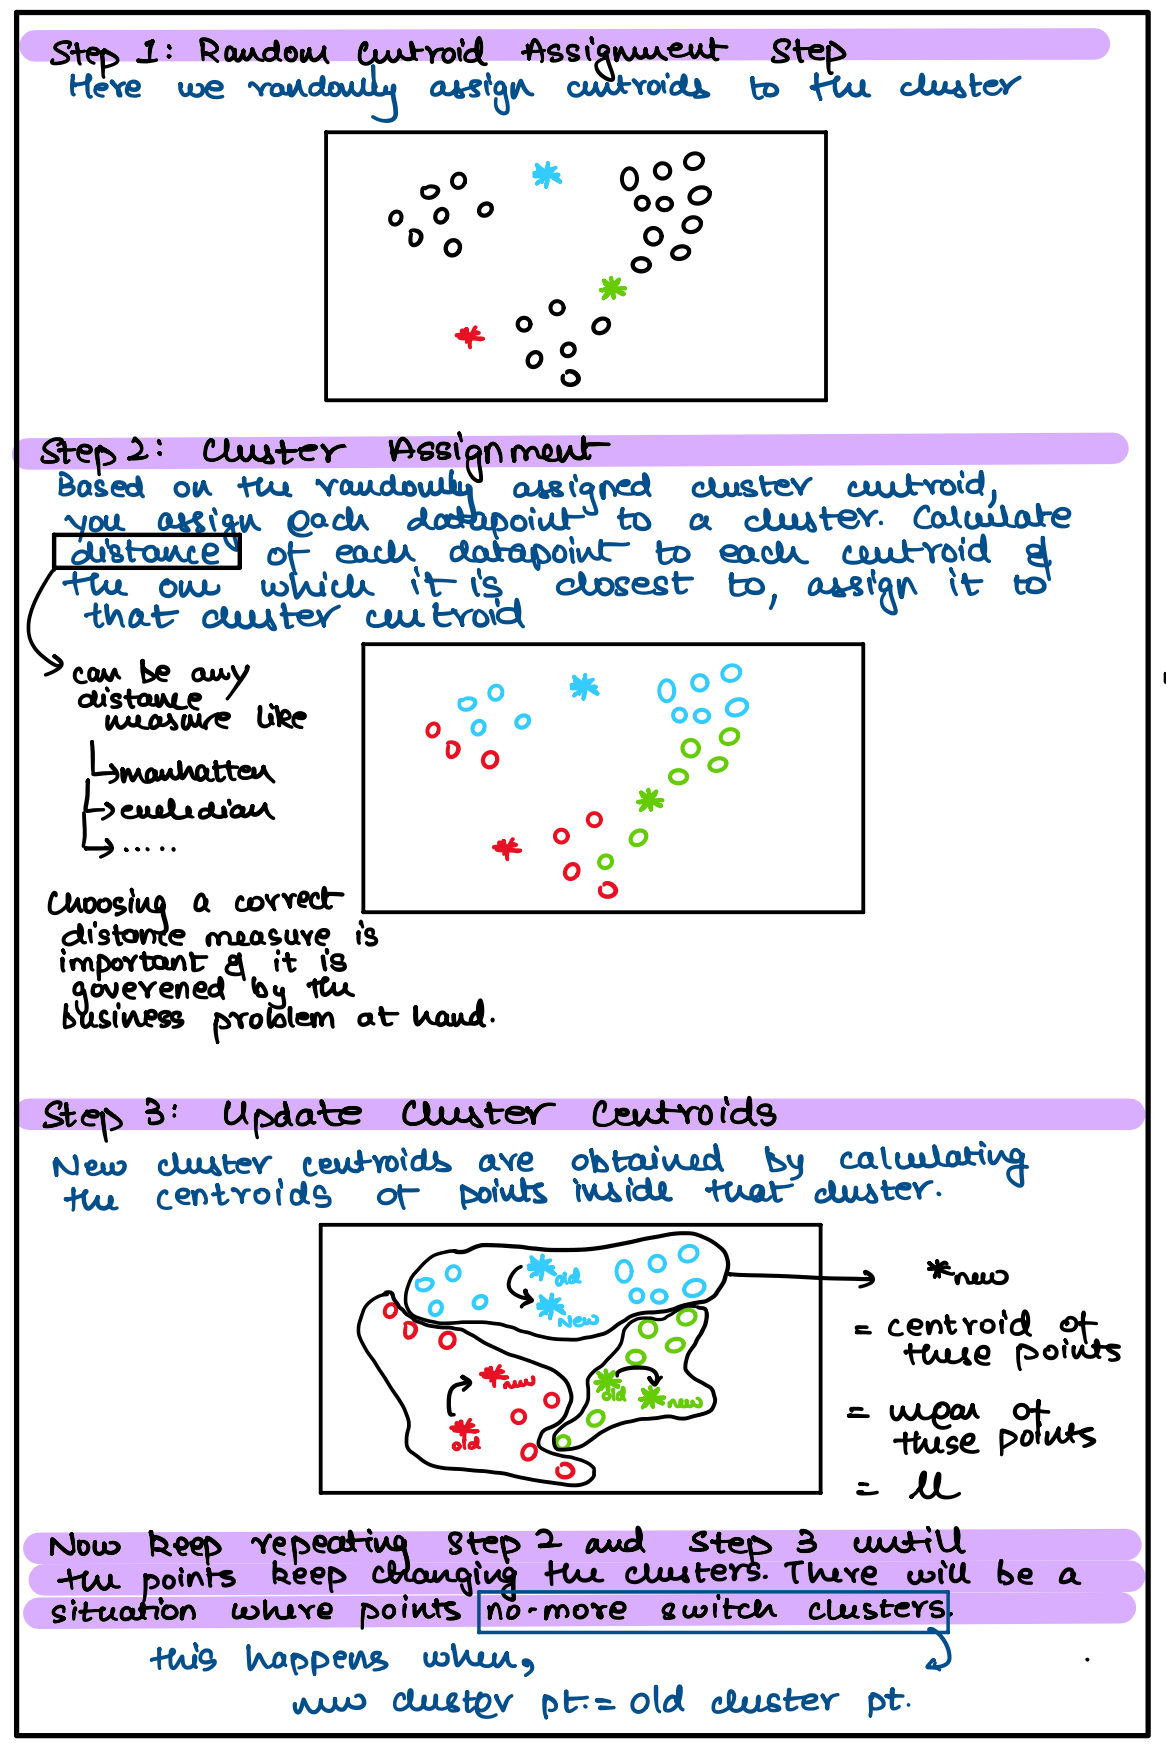 Step 1: Random Centroid Assignment Step
Here we randomly assign centroids to the cluster
Step 2: Cluster Assignment
Based on the randomly assigned cluster centroid,
you assign each datapoint to a cluster. Calculate
distance of each datapoint to each centroid &
the one which it is closest to, assign it to
that cluster centroid
can be any
distance
measure like
manhatten
eucledian
.....
Choosing a correct
distance measure is
important & it is
goverened by the
business problem at hand.
Step 3: Update Cluster Centroids
New cluster centroids are obtained by calculating
the centroids of points inside that cluster.
old
New
new
old
old
new
*new
= centroid of
these points
= mean of
these points
= μ
Now keep repeating step 2 and step 3 untill
the points keep changing the clusters. There will be a
situation where points no-more switch clusters.
this happens when,
new cluster pt. = old cluster pt.